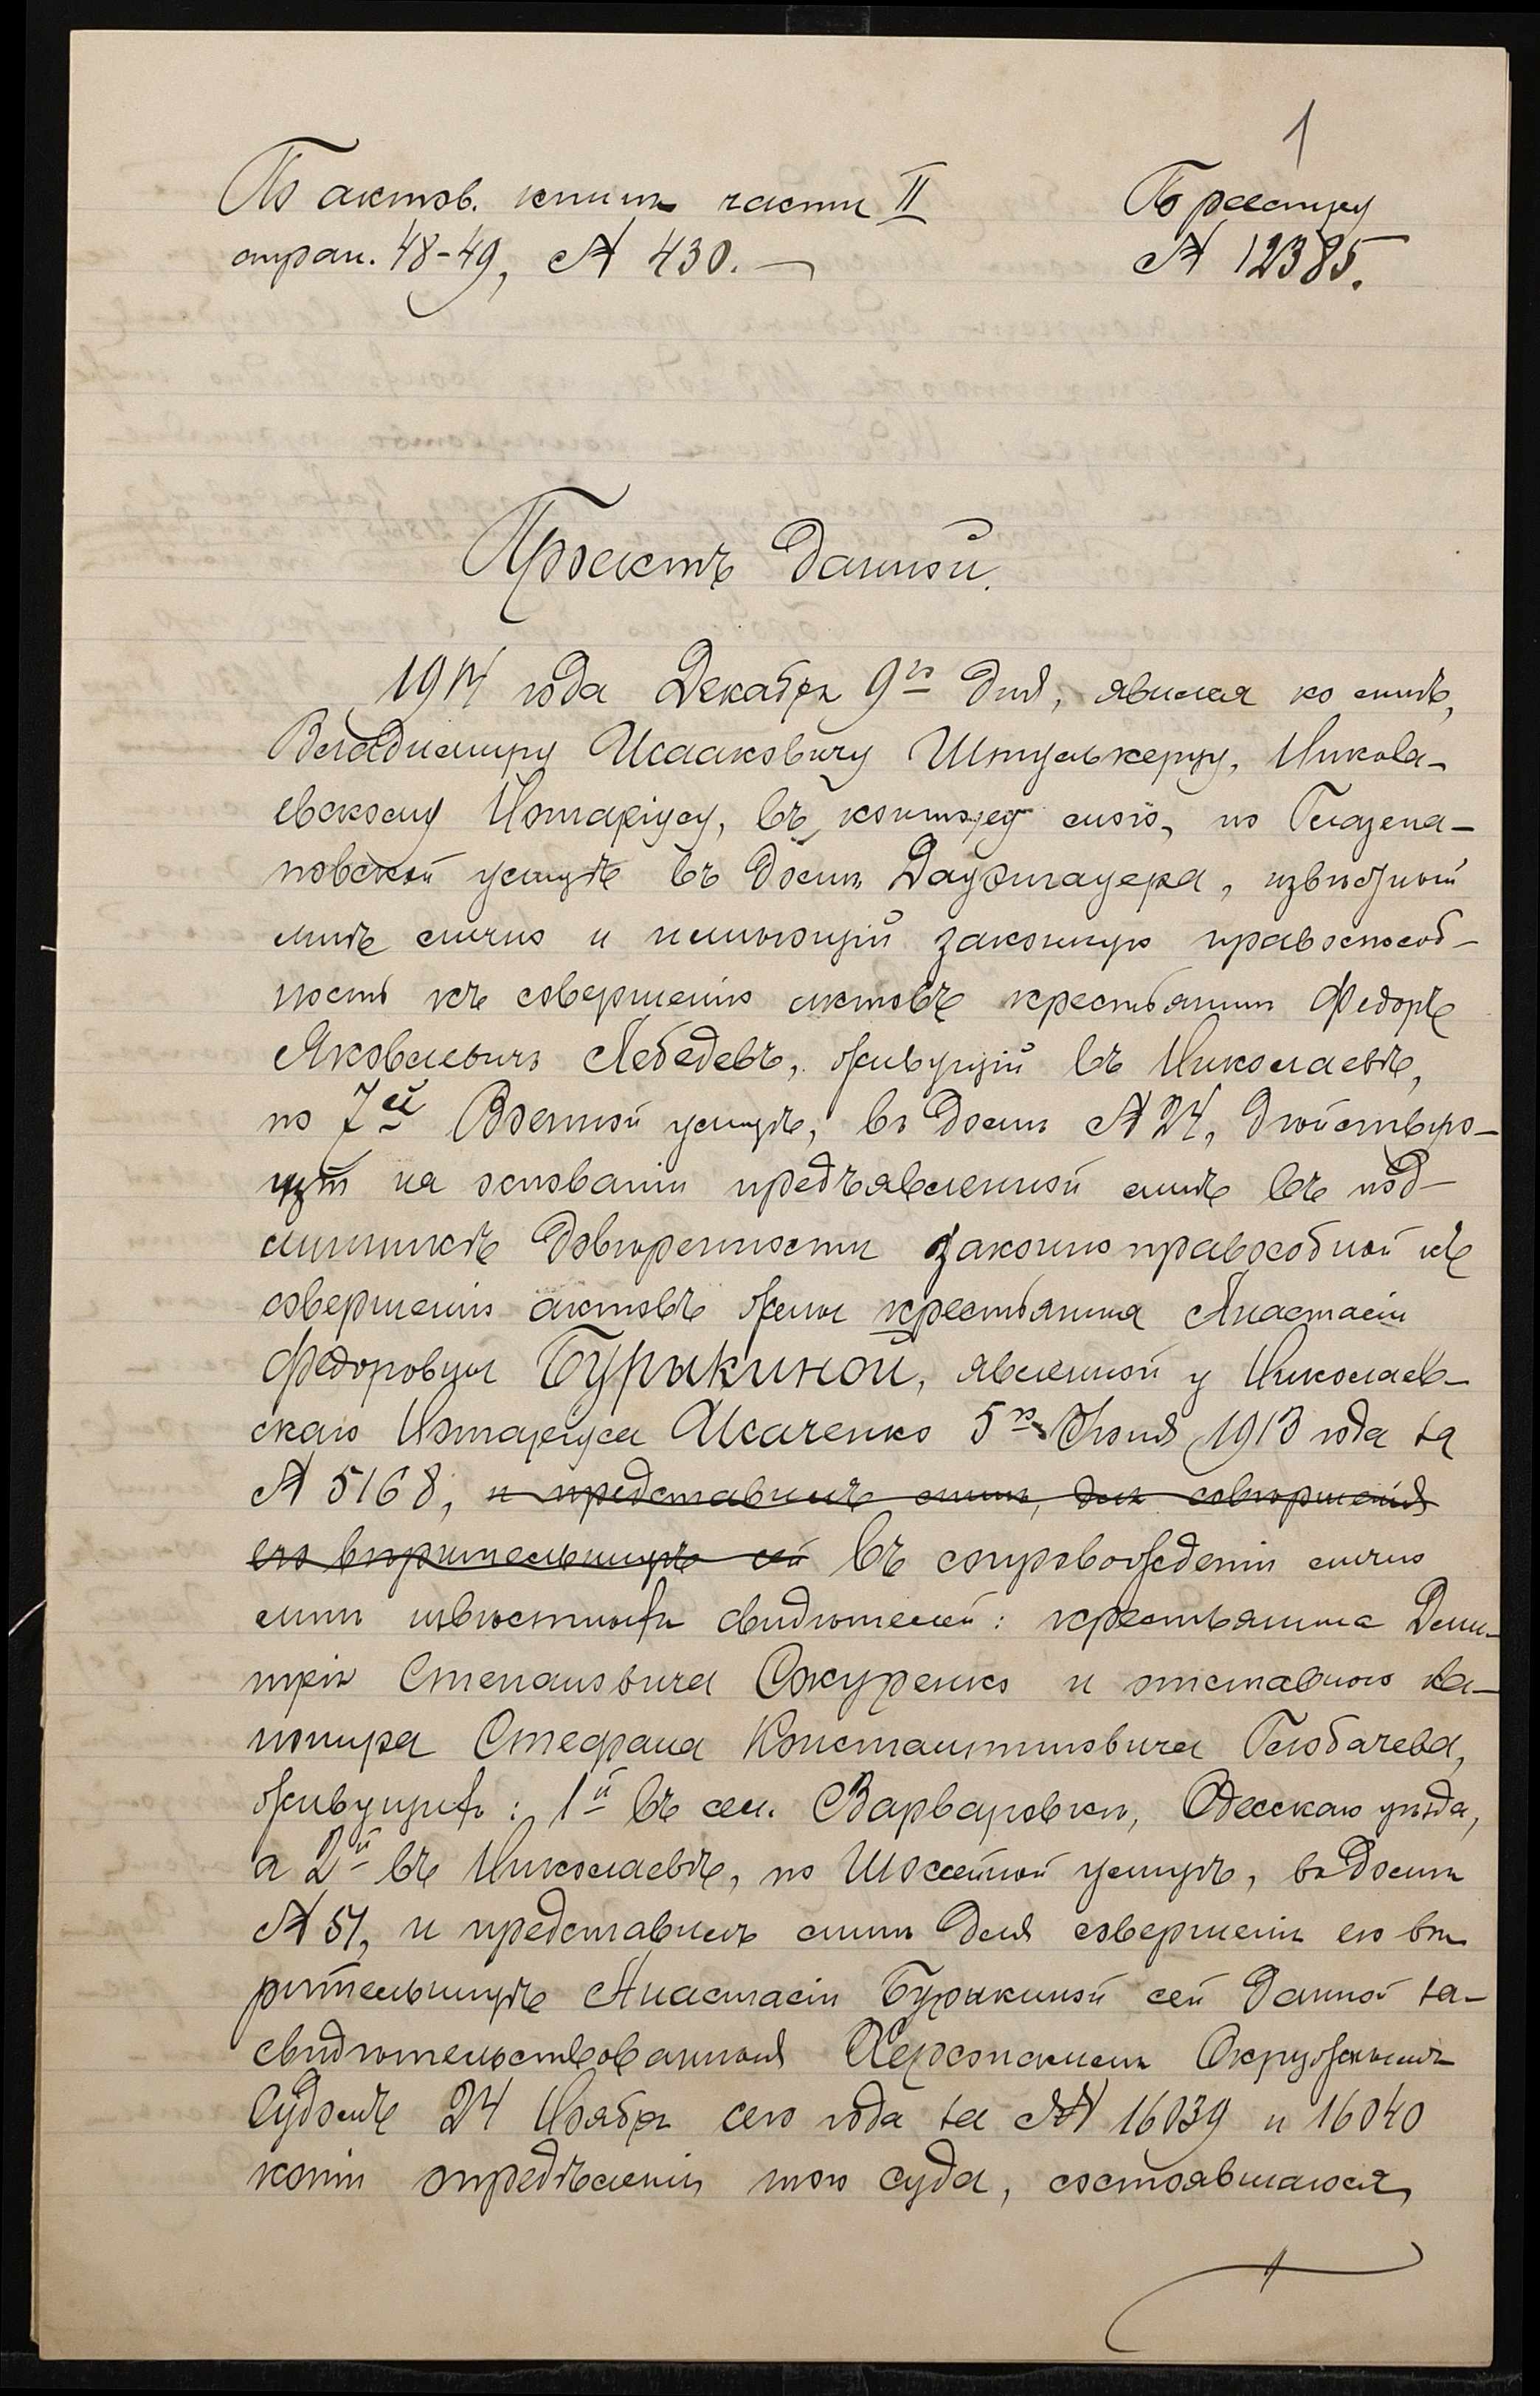 1
По актов. книгѣ части II
стран. 48-49, № 430.
По реестру
№ 12385.
Проектъ данной.
1914 года Декабря 9го дня, явился ко мнѣ,
Владимиру Исааковичу Штулькерцу, Никола-
евскому Нотаріусу, въ контору мою, по Глазена-
повской улицѣ въ домѣ Даушгауера, извѣстный
мнѣ лично и имѣющій законную правоспособ-
ность къ совершенію актовъ крестьянинъ Федоръ
Яковлевичъ Лебедевъ, живущій въ Николаевѣ,
по 7ей Военной улицѣ, въ домѣ № 24, дѣйствую-
щій на основаніи предъявленной мнѣ въ под-
линникѣ довѣренности законно правособной къ
совершенію актовъ жены крестьянина Анастасіи
Федоровны Бурыкиной, явленной у Николаев-
скаго Нотаріуса Исаченко 5го Іюня 1913 года за
№ 5168, и представилъ мнѣ, для совершенія
его вѣрительницѣ сей въ сопровожденіи лично
мнѣ извѣстныхъ свидѣтелей: крестьянина Дми-
трія Степановича Сжуренко и отставного ка-
нонира Стефана Константиновича Глобачева,
живущихъ: 1й въ сел. Варваровкѣ, Одесскаго уѣзда,
а 2й въ Николаевѣ, по Шоссейной улицѣ, въ домѣ
№ 51, и представилъ мнѣ для совершенія его вѣ-
рительницѣ Анастасіи Бурыкиной сей данной за-
свидѣтельствованныя Херсонскимъ Окружнымъ
Судомъ 24 Ноября сего года за №№ 16039 и 16040
копіи опредѣленій того суда, состоявшагося